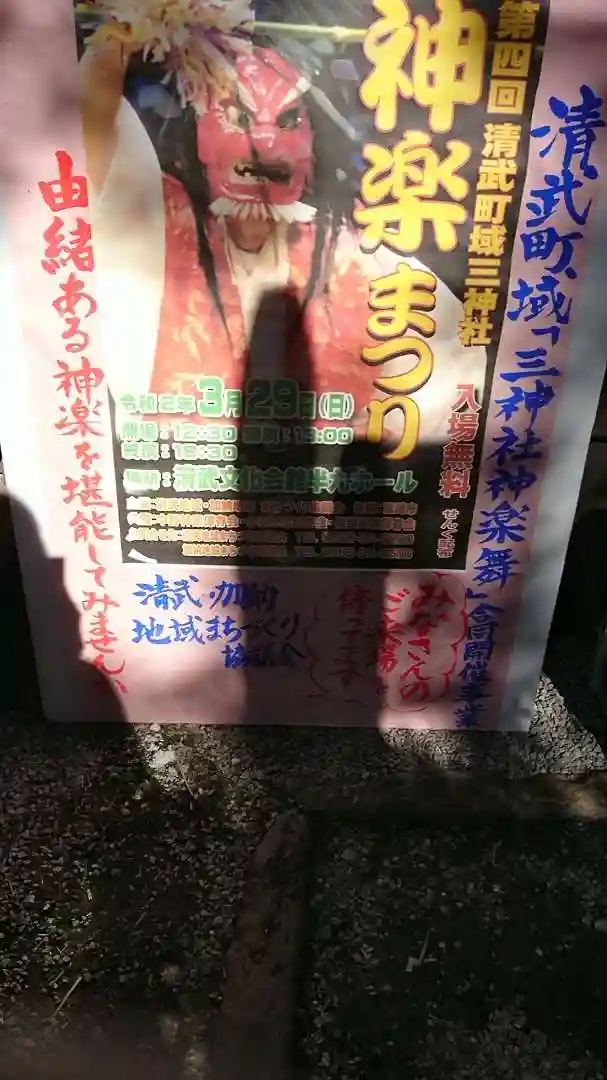 清武町域「三神社神楽舞」合同開催事業
第四回 清武町域三神社
神楽まつり
入場無料
令和2年3月29日(日)
開場:12:30 開演:13:00
終演:16:30
場所:清武文化会館半九ホール
由緒ある神楽を堪能してみませんか
清武・加納
地域まちづくり
協議会
みなさんの
ご来場
待ってます